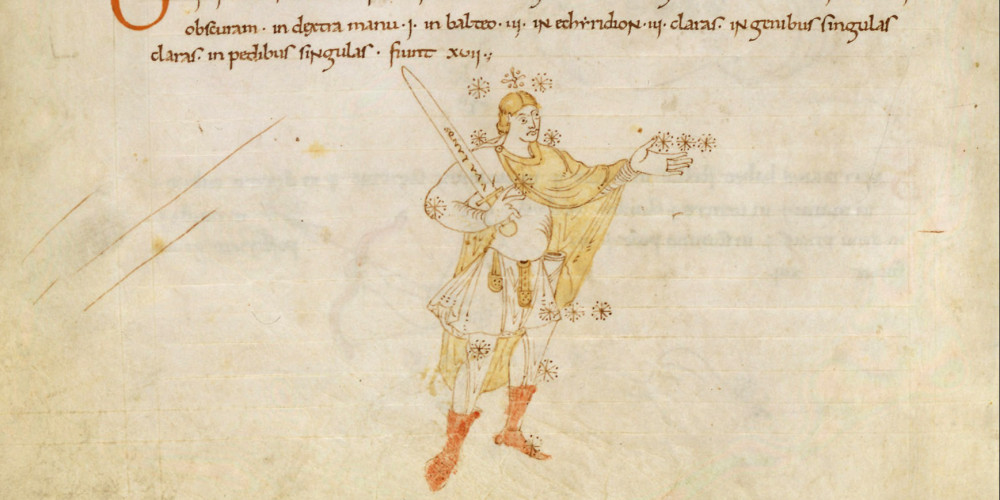 obscuram · in dextra manu · i · in balteo · iii · in echyridion · iii · claras · in genibus singulas
claras · in pedibus singulas · fiunt xvii ·,